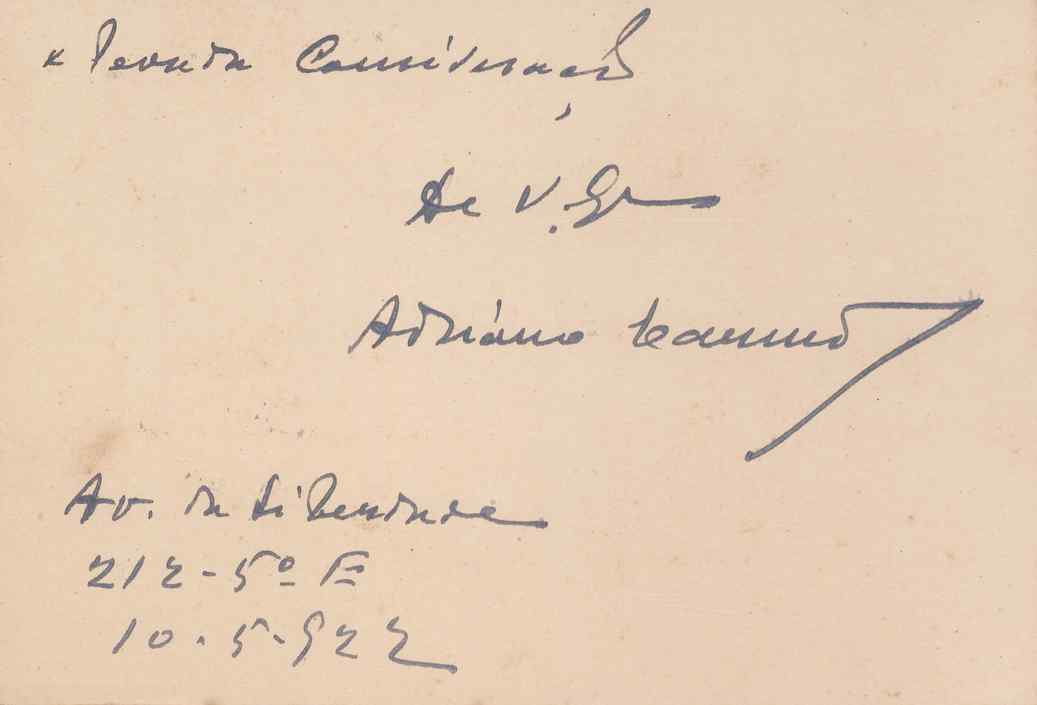 e levada Consideração
De V. Ex
Adriano
Av. da Liberdade
212-5º E
10-5-922